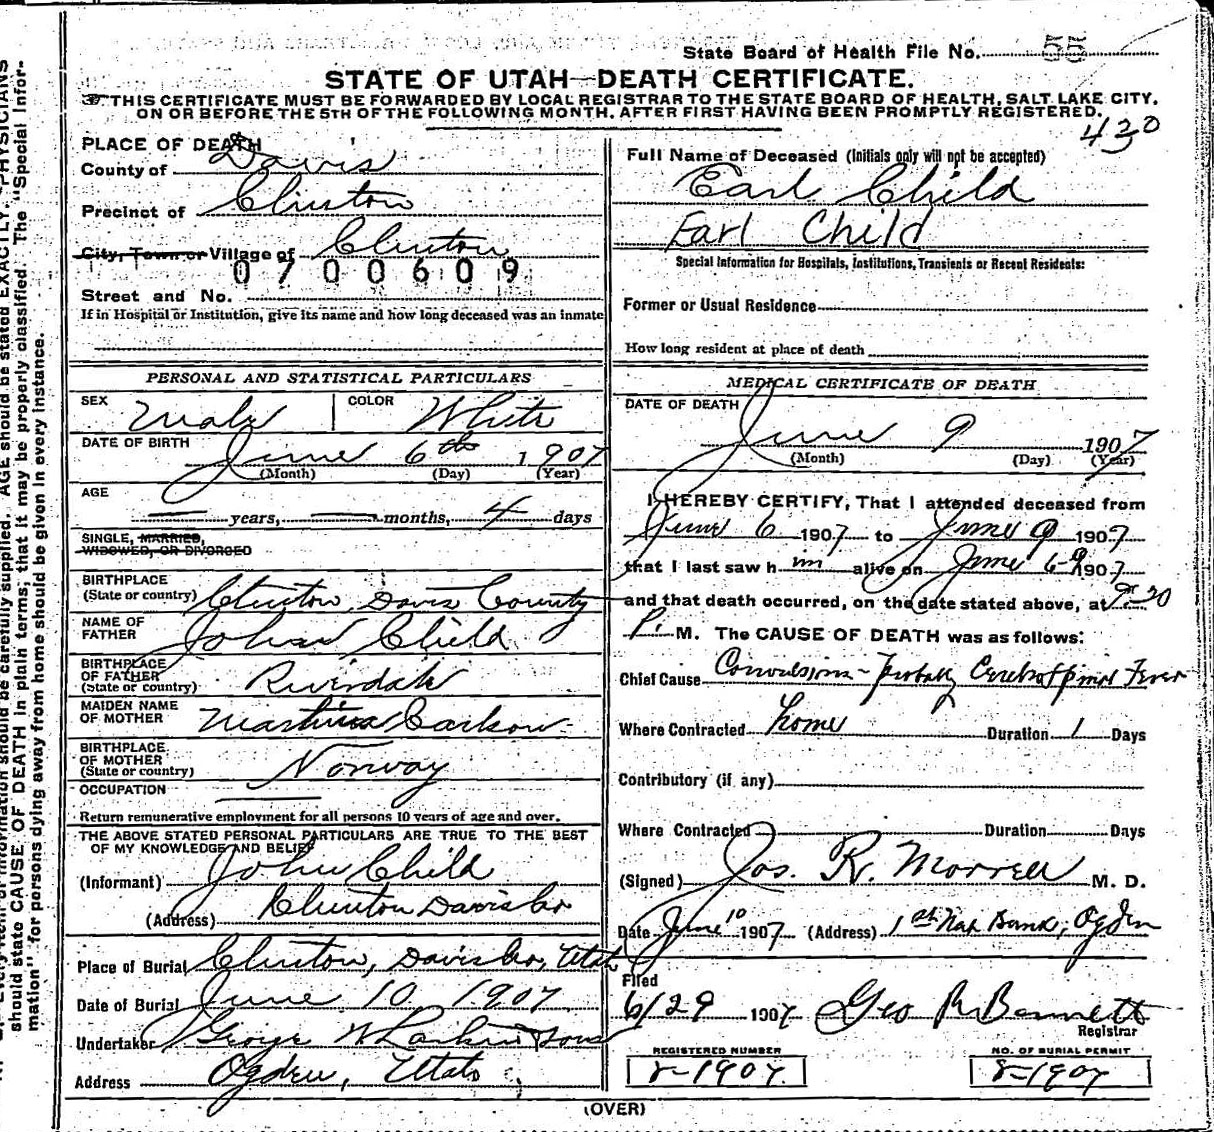 State Board of Health File No. 55
STATE OF UTAH—DEATH CERTIFICATE.
THIS CERTIFICATE MUST BE FORWARDED BY LOCAL REGISTRAR TO THE STATE BOARD OF HEALTH, SALT LAKE CITY,
ON OR BEFORE THE 5TH OF THE FOLLOWING MONTH, AFTER FIRST HAVING BEEN PROMPTLY REGISTERED.
430
PLACE OF DEATH
County of Davis
Precinct of Clinton
City, Town or Village of Clinton
0700609
Street and No.
If in Hospital or Institution, give its name and how long deceased was an inmate
PERSONAL AND STATISTICAL PARTICULARS
SEX Male COLOR White
DATE OF BIRTH
June 6th 1907
(Month) (Day) (Year)
AGE
— years, — months, 4 days
SINGLE, MARRIED,
WIDOWED, OR DIVORCED
BIRTHPLACE
(State or country) Clinton, Davis County
NAME OF
FATHER John Child
BIRTHPLACE
OF FATHER
(State or country) Riverdale
MAIDEN NAME
OF MOTHER Martina Carlson
BIRTHPLACE
OF MOTHER
(State or country) Norway
OCCUPATION
Return remunerative employment for all persons 10 years of age and over.
THE ABOVE STATED PERSONAL PARTICULARS ARE TRUE TO THE BEST
OF MY KNOWLEDGE AND BELIEF
(Informant) John Child
(Address) Clinton Davis Co
Place of Burial Clinton, Davis Co, Utah
Date of Burial June 10 1907
Undertaker George W Larkin & Sons
Address Ogden, Utah
Full Name of Deceased (Initials only will not be accepted)
Earl Child
Earl Child
Special Information for Hospitals, Institutions, Transients or Recent Residents:
Former or Usual Residence
How long resident at place of death
MEDICAL CERTIFICATE OF DEATH
DATE OF DEATH
June 9 1907
(Month) (Day) (Year)
I HEREBY CERTIFY, That I attended deceased from
June 6 1907 to June 9 1907
that I last saw him alive on June 6-9 1907
and that death occurred, on the date stated above, at 9-20
P. M. The CAUSE OF DEATH was as follows:
Chief Cause Convulsions - Probably Cerebrospinal Fever
Where Contracted home Duration 1 Days
Contributory (if any)
Where Contracted Duration Days
(Signed) Jos. R. Morrell M. D.
Date June 10 1907 (Address) 1st Nat Bank, Ogden
Filed
6/29 1907 Geo R Bennett
Registrar
REGISTERED NUMBER
8-1907
NO. OF BURIAL PERMIT
8-1907
(OVER)
should be carefully supplied. AGE should be stated EXACTLY. PHYSICIANS
should state CAUSE OF DEATH in plain terms, that it may be properly classified. The "Special Infor-
mation" for persons dying away from home should be given in every instance.